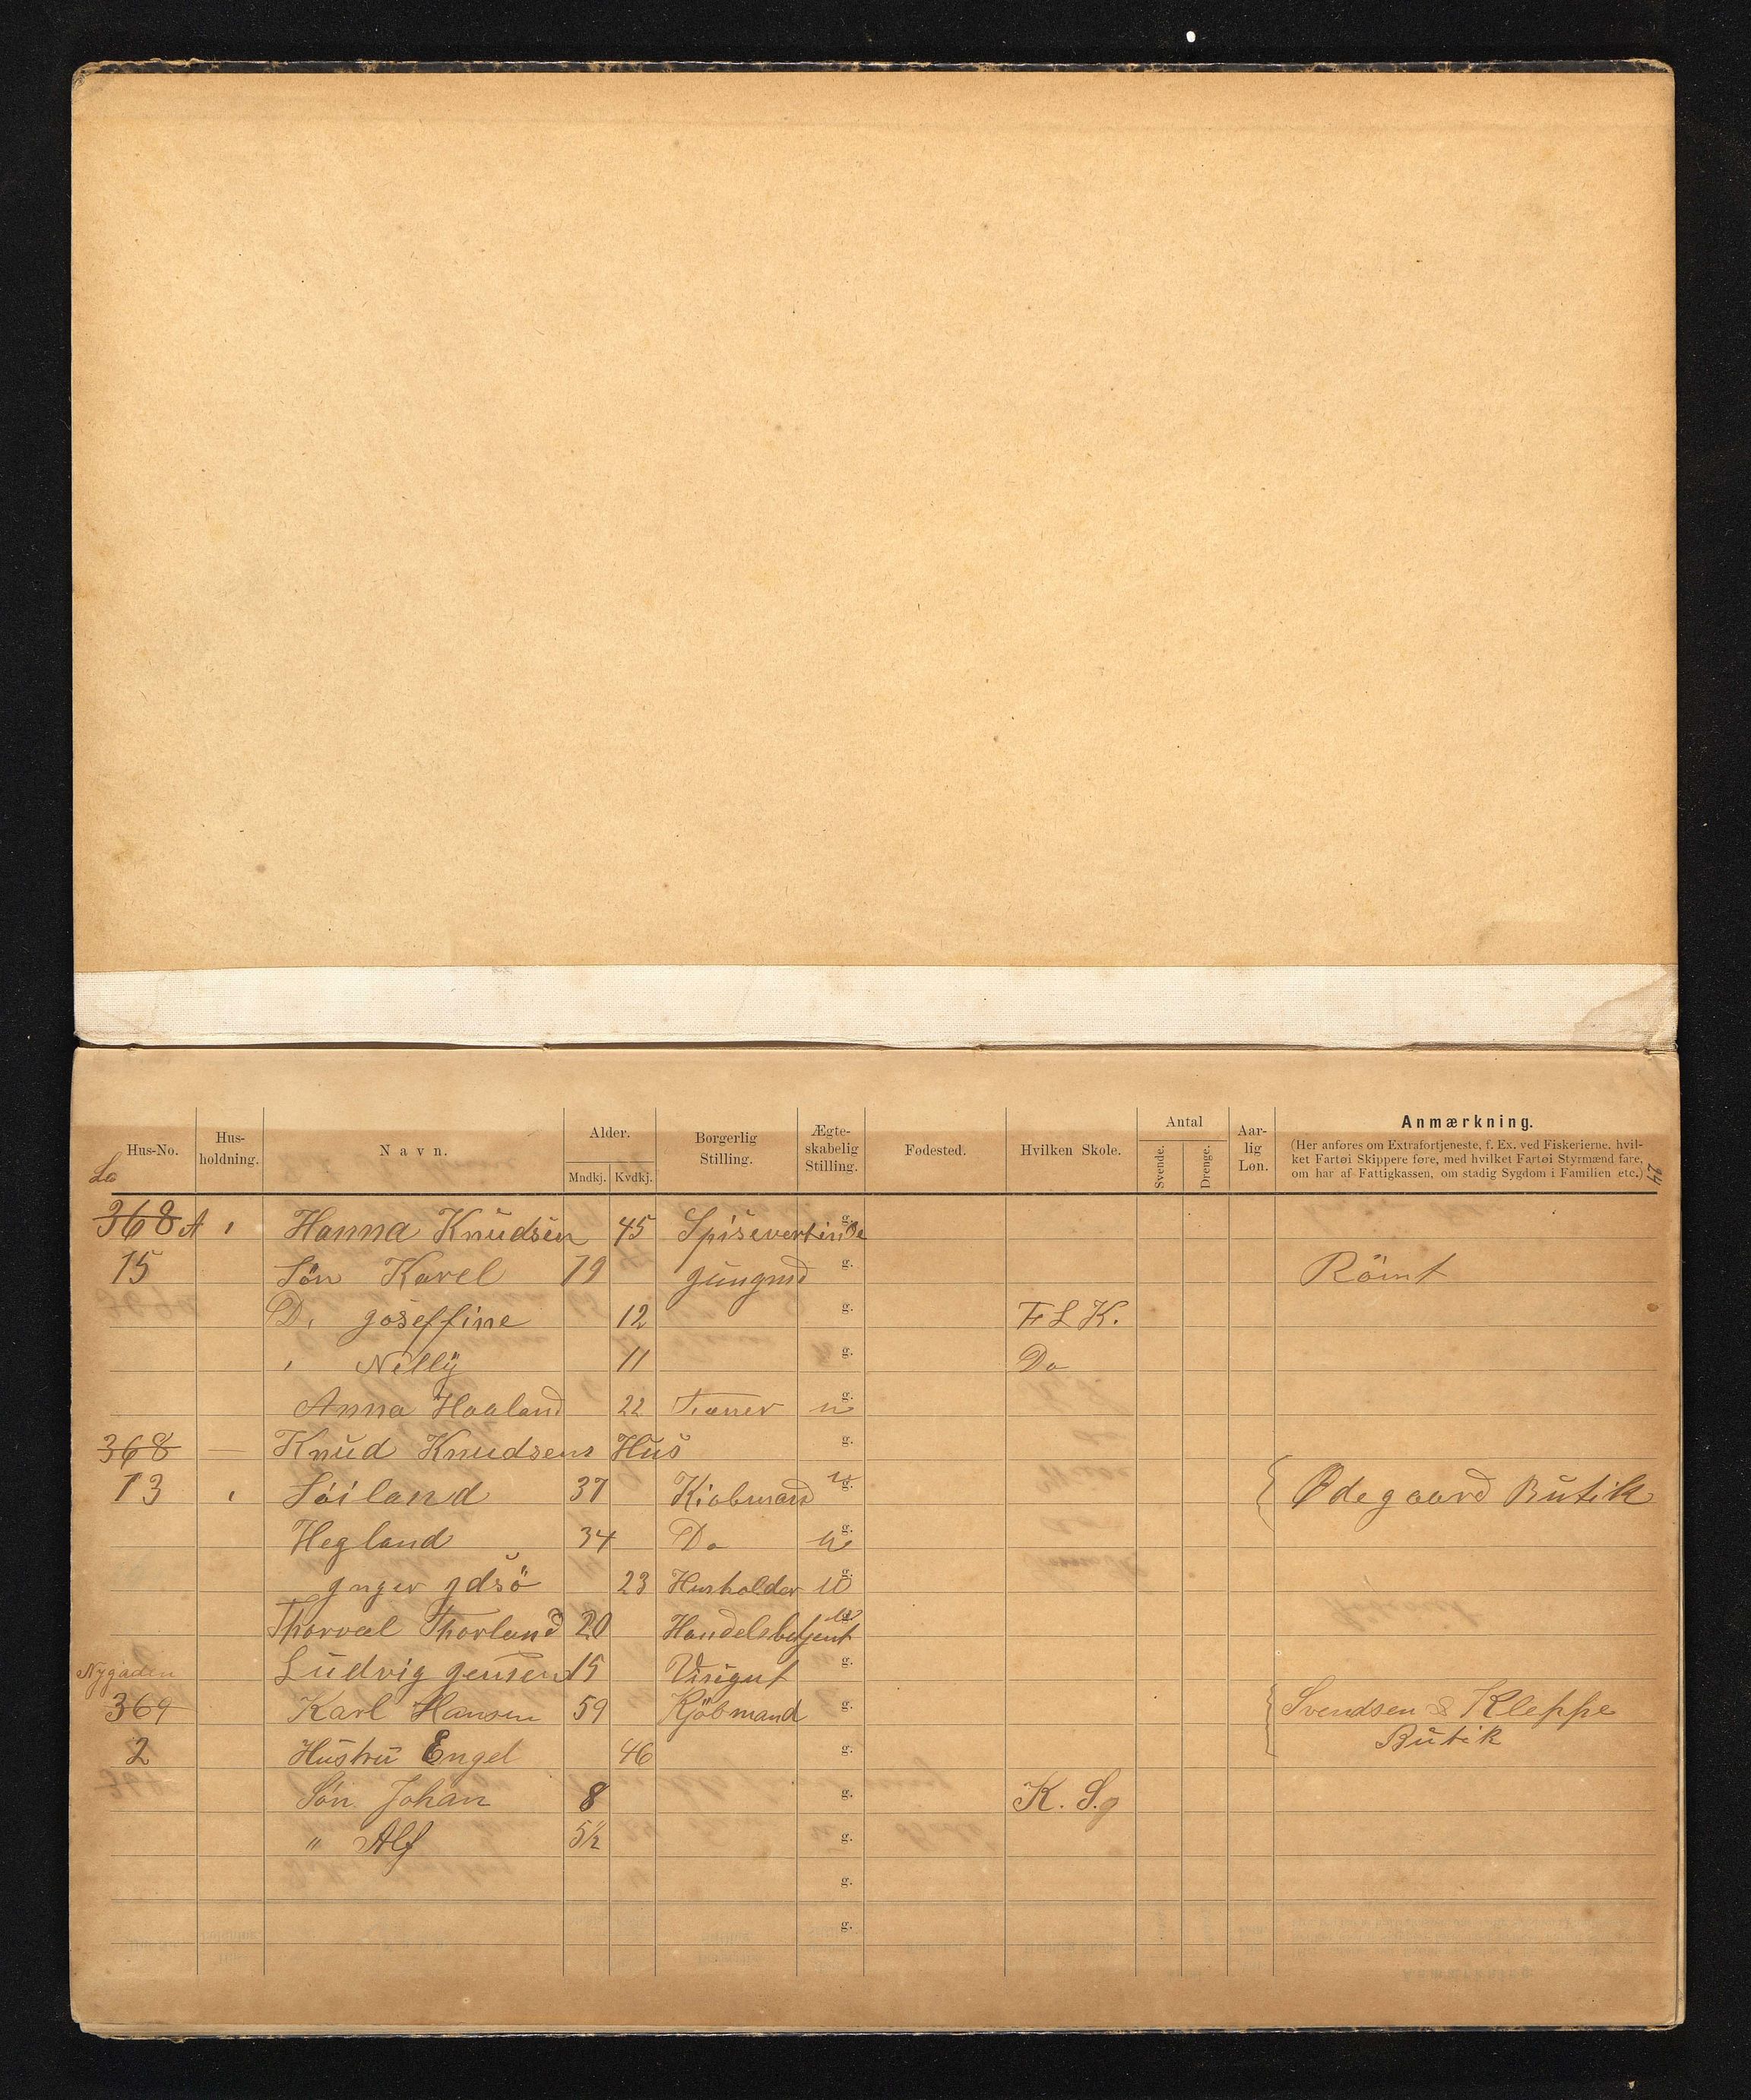 Hus-No. Hus-holdning. Navn. Alder. Mndkj. Kvdkj. Borgerlig Stilling. Ægte-skabelig Stilling. Fødested. Hvilken Skole. Antal Svende. Drenge. Aar-lig Løn. Anmærkning.
(Her anføres om Extrafortjeneste, f. Ex. ved Fiskerierne, hvil-
ket Fartøi Skippere føre, med hvilket Fartøi Styrmænd fare,
om har af Fattigkassen, om stadig Sygdom i Familien etc.)
368 A Hanna Knudsen 45 Spisevertinde g.
15 Søn Karel 19 gungmd g. Römt
D. goseffine 12 g. F L K.
Nelly 11 g. Do
Anna Haaland 22 Tæner g. u
368 — Knud Knudsens Hus g.
13 Söiland 37 Kiobmand g. u Ødegaard Butik
Hegland 34 Do g. u
gnger gdsö 23 Husholder g. u
Thorval Thorland 20 Handelsbetjent g. u
Nygaden Ludvig gensen 15 Visigut g.
369 Karl Hansen 59 Kjöbmand g. Svendsen & Kleppe
2 Hustru Engel 46 g. Butik
Søn Johan 8 g. K. S.g
" Alf 5½ g.
g.
g.